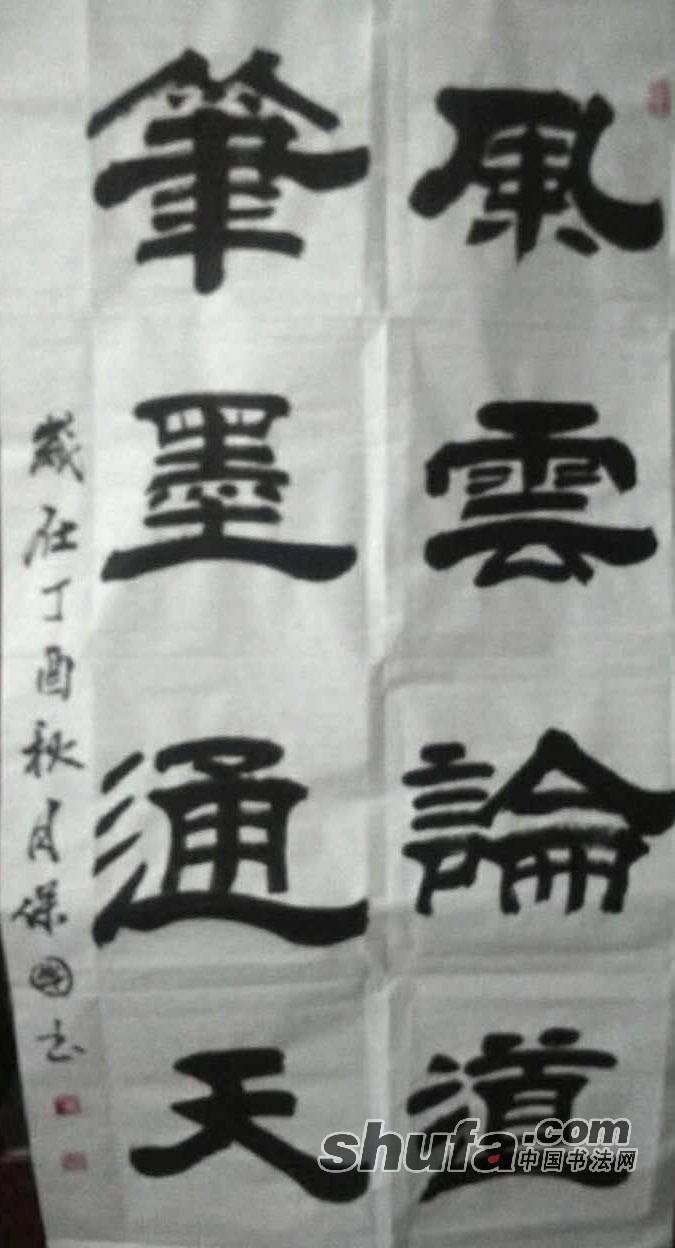 風雲論道
筆墨通天
歲在丁酉秋月保國书
shufa.com
中国书法网